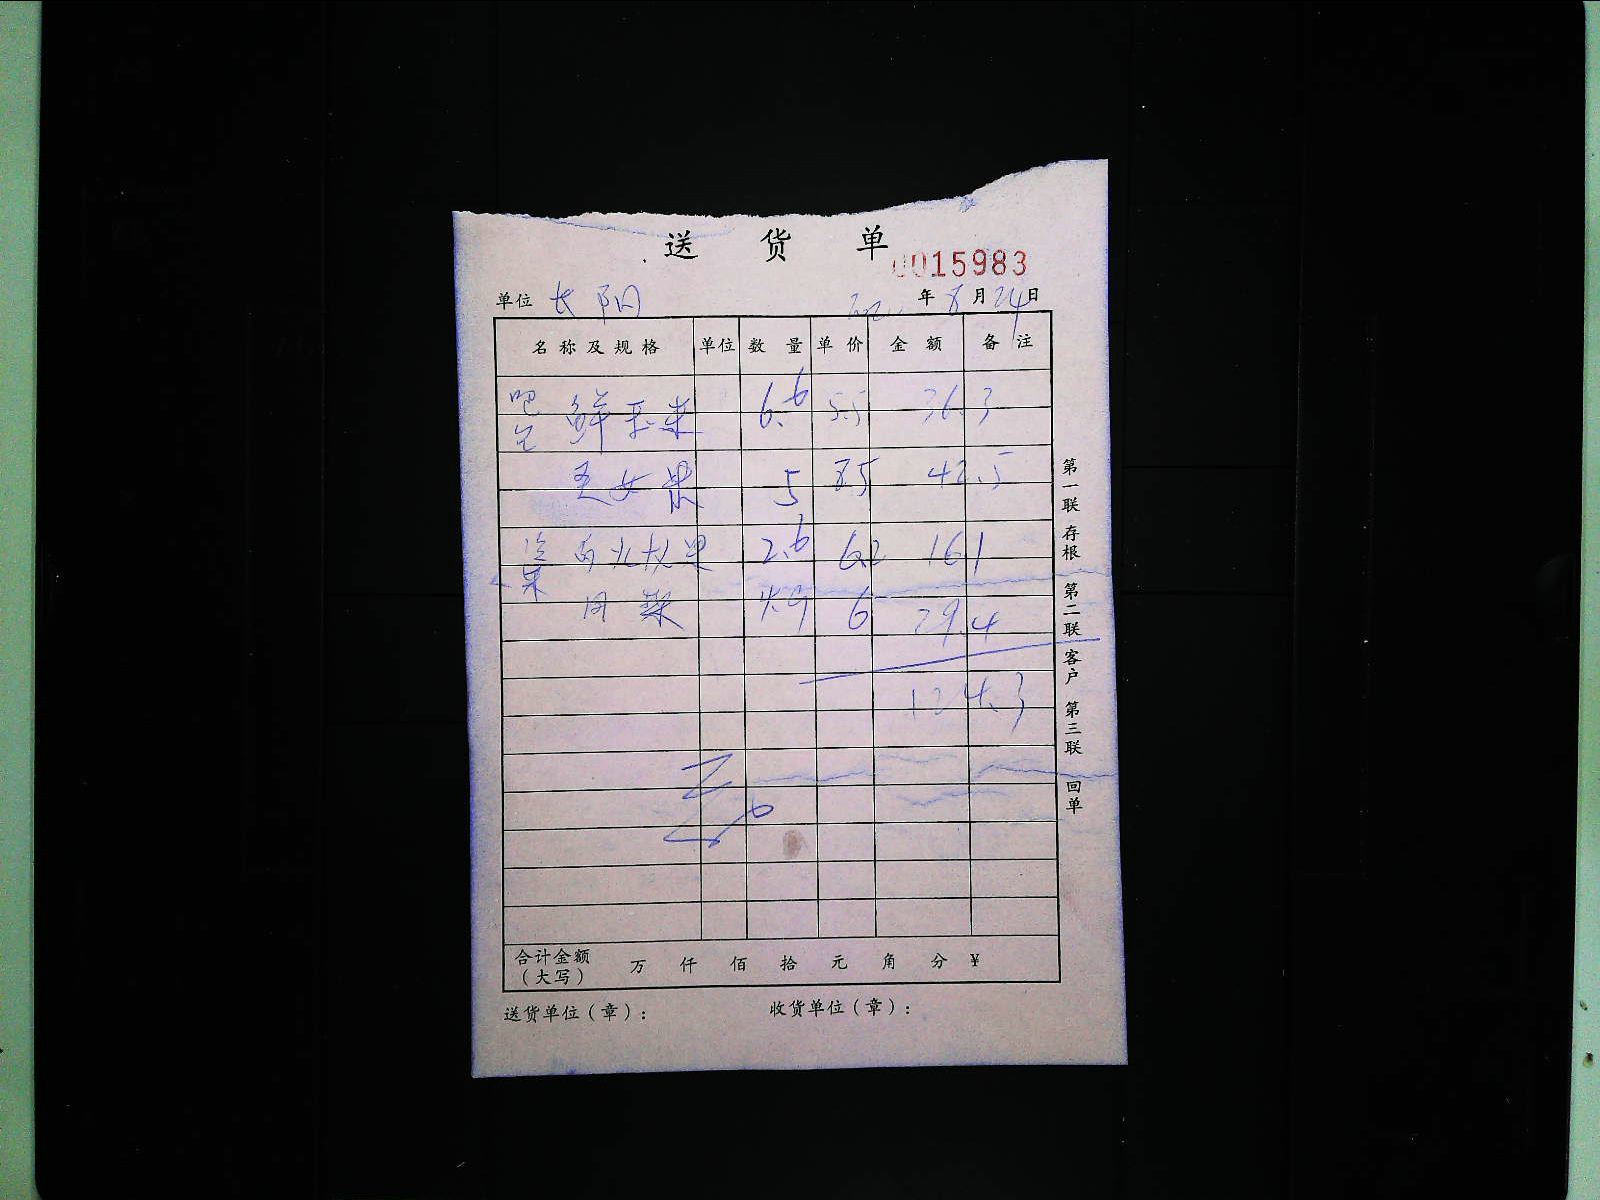 送 货 单
0015983
单位 长阳 年 8 月 24 日
名称及规格 单位 数量 单价 金额 备注
吧台 鲜玉米 6.6 5.5 36.3
圣女果 5 8.5 42.5
凉菜 西兰 2.6 6.2 16.1
4.9 6 29.4
124.3
合计金额（大写） 万 仟 佰 拾 元 角 分 ¥
送货单位（章）： 收货单位（章）：
第一联 存根 第二联 客户 第三联 回单